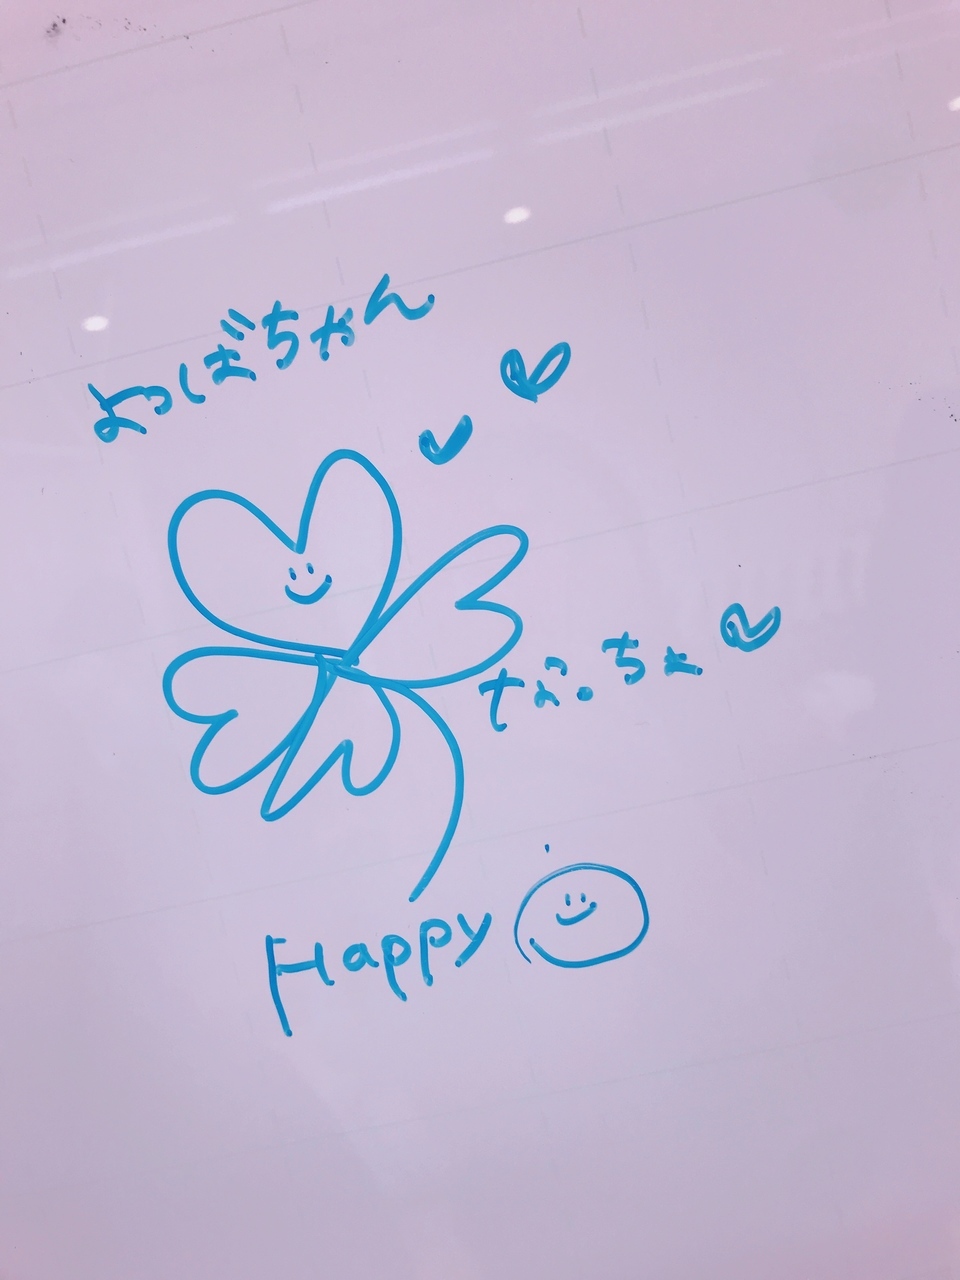 よつばちゃん
なっちょ
Happy